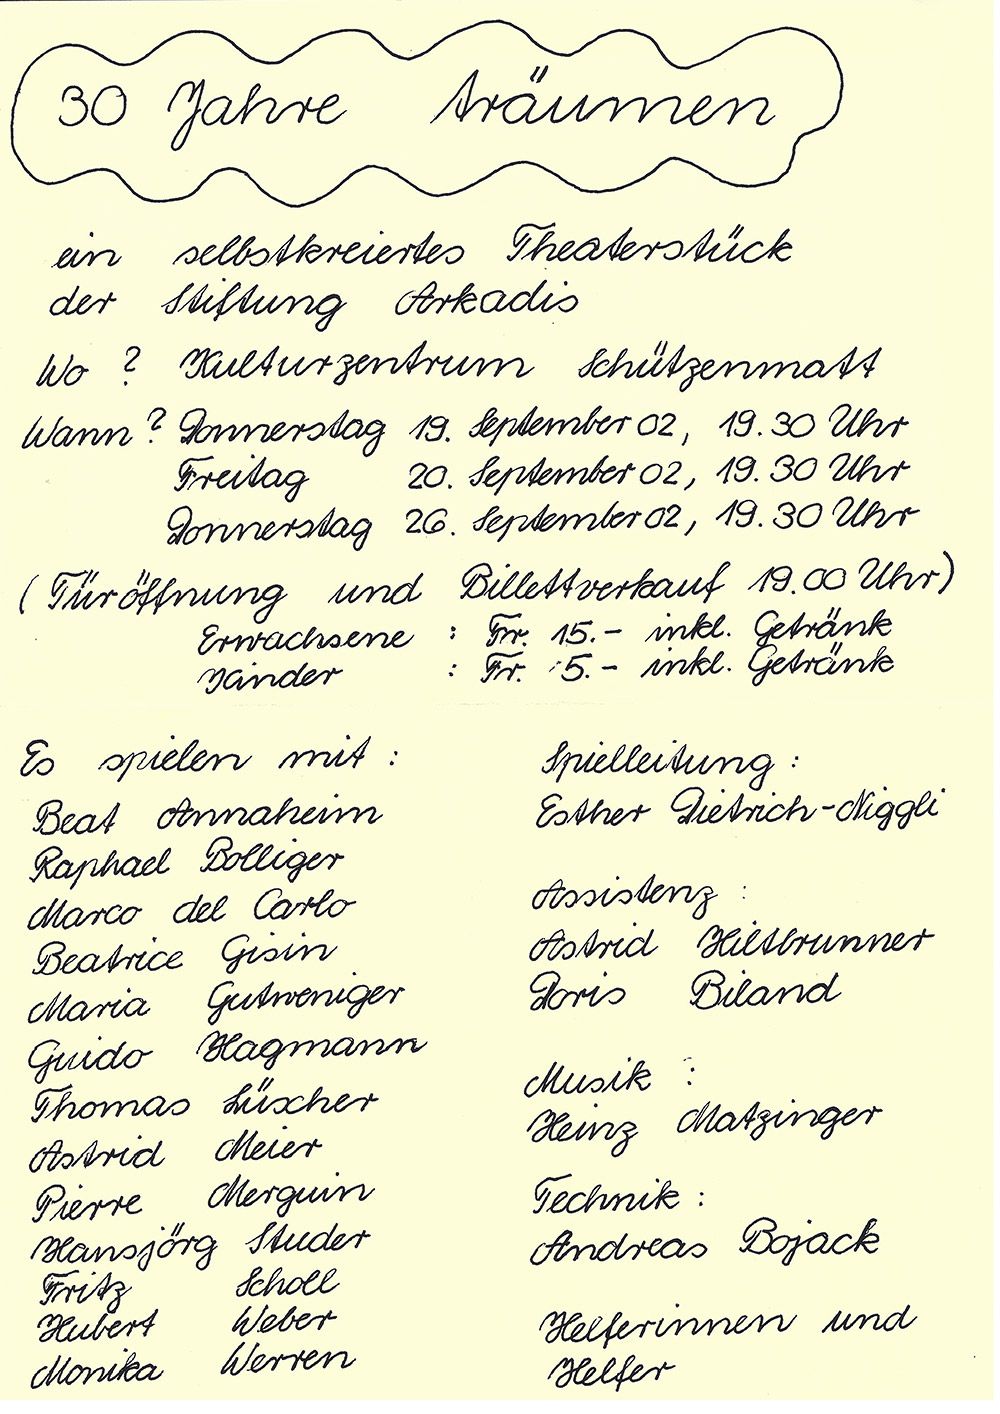 30 Jahre träumen
ein selbstkreiertes Theaterstück
der Stiftung Arkadis
Wo ? Kulturzentrum Schützenmatt
Wann ? Donnerstag 19. September 02, 19.30 Uhr
Freitag 20. September 02, 19.30 Uhr
Donnerstag 26. September 02, 19.30 Uhr
( Türöffnung und Billettverkauf 19.00 Uhr)
Erwachsene : Fr. 15.- inkl. Getränk
Kinder : Fr. 5.- inkl. Getränk
Es spielen mit :
Beat Annaheim
Raphael Bolliger
Marco del Carlo
Beatrice Gisin
Maria Gutweniger
Guido Hagmann
Thomas Lüscher
Astrid Meier
Pierre Merguin
Hansjörg Studer
Fritz Scholl
Hubert Weber
Monika Werren
Spielleitung :
Esther Dietrich-Niggli
Assistenz :
Astrid Hiltbrunner
Doris Biland
Musik :
Heinz Matzinger
Technik :
Andreas Bojack
Helferinnen und
Helfer